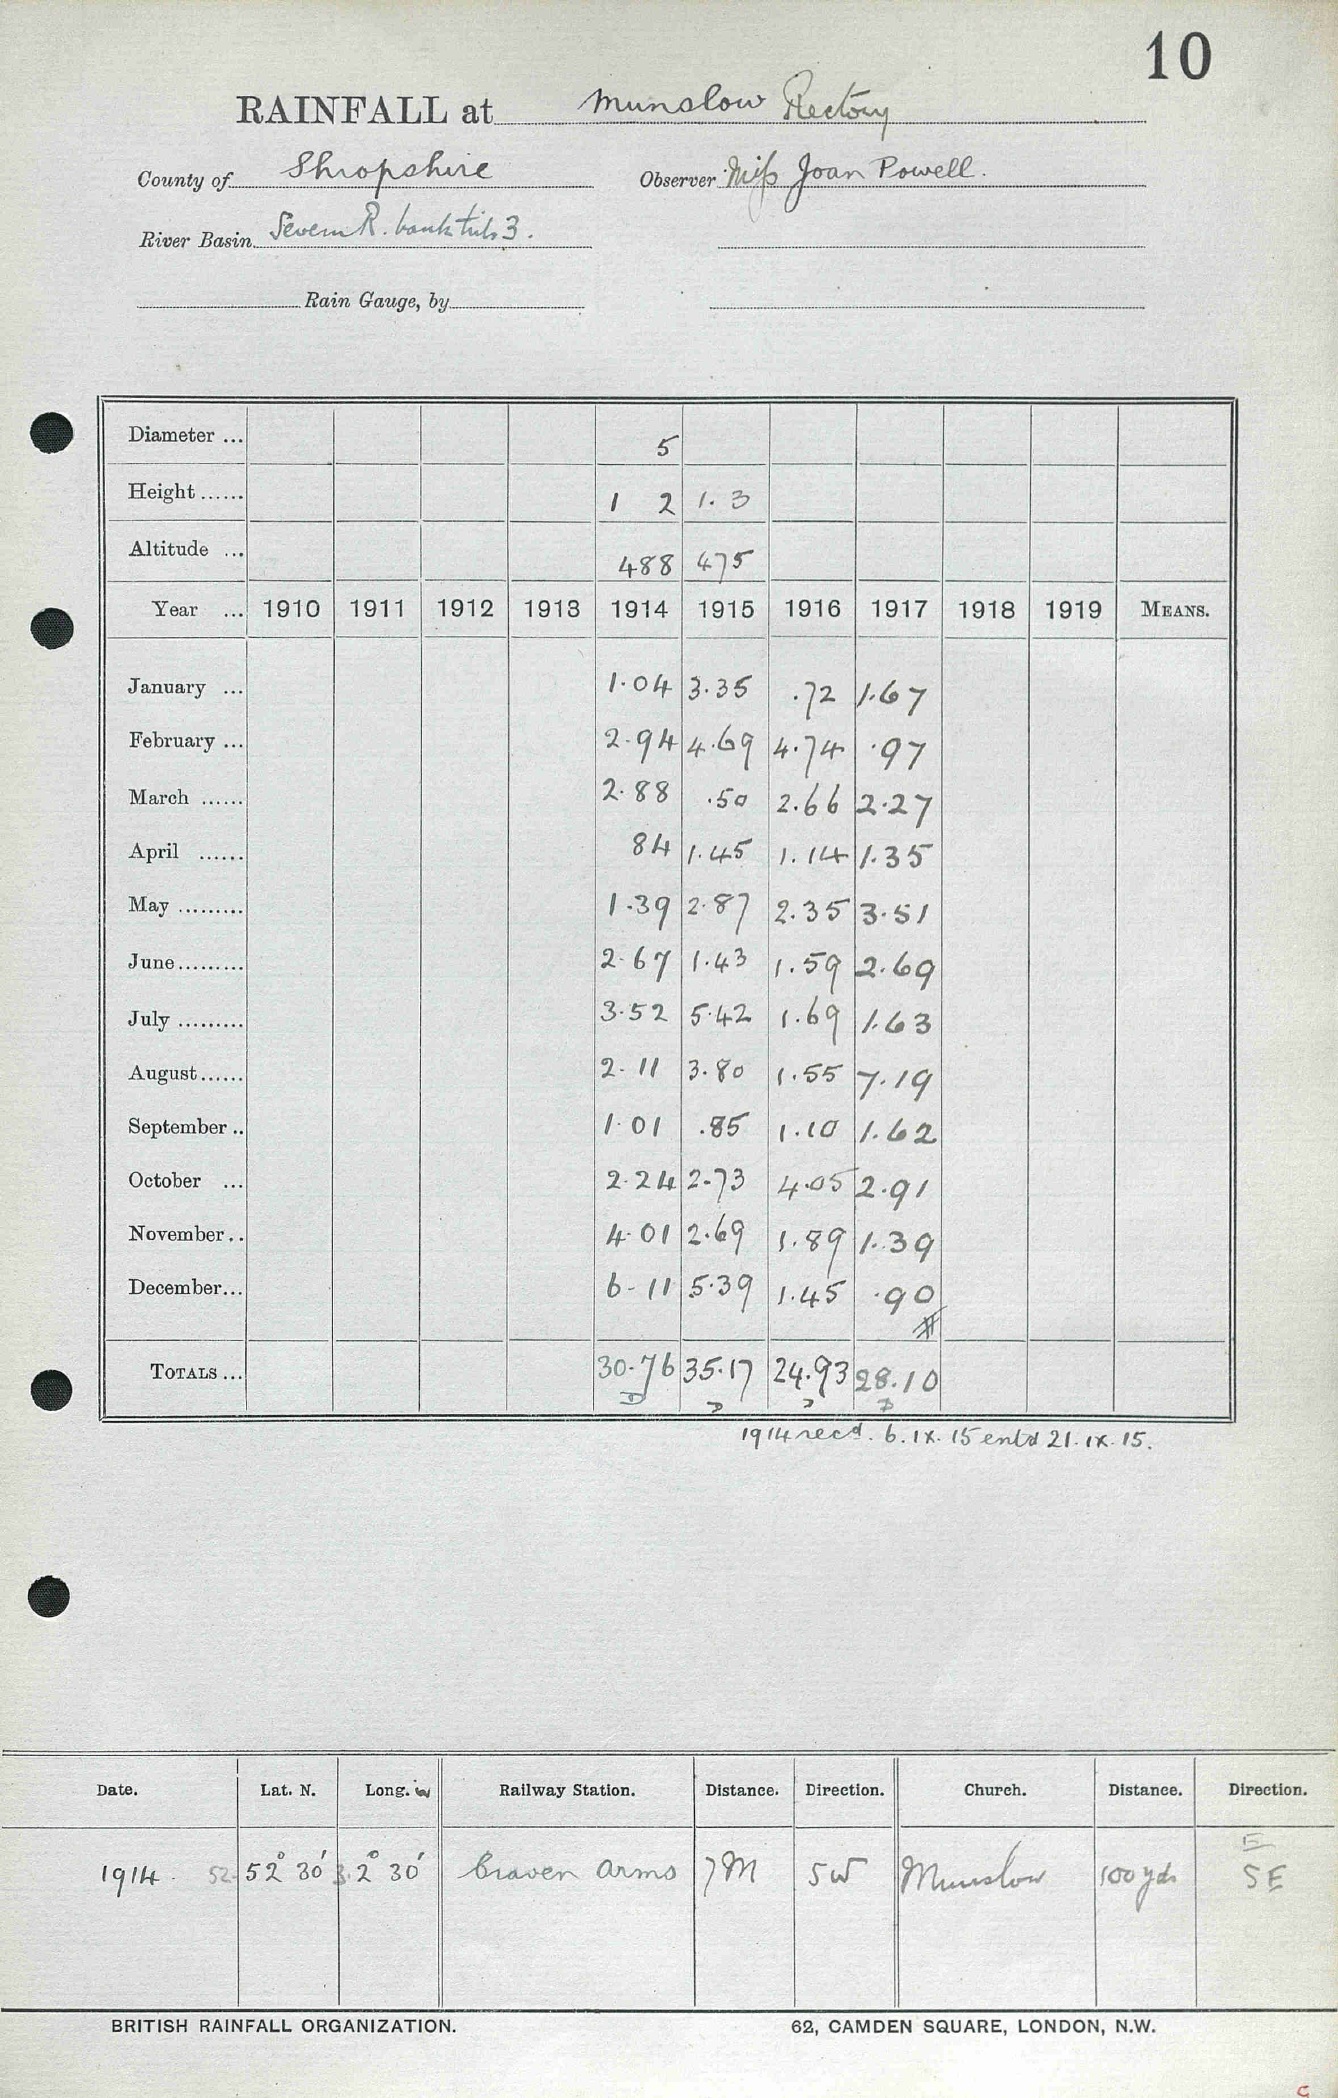 10
RAINFALL at Munslow Rectory
County of Shropshire Observer Miss Joan Powell.
River Basin Severn R. bank tribs 3.
Rain Gauge, by
Diameter ... 5
Height ...... 1 2 1.3
Altitude ... 488 475
Year ... 1910 1911 1912 1913 1914 1915 1916 1917 1918 1919 MEANS.
January ... 1.04 3.35 .72 1.67
February ... 2.94 4.69 4.74 .97
March ...... 2.88 .50 2.66 2.27
April ...... 84 1.45 1.14 1.35
May ......... 1.39 2.87 2.35 3.51
June......... 2.67 1.43 1.59 2.69
July ......... 3.52 5.42 1.69 1.63
August...... 2.11 3.80 1.55 7.19
September .. 1.01 .85 1.10 1.62
October ... 2.24 2.73 4.05 2.91
November.. 4.01 2.69 1.89 1.39
December... 6-11 5.39 1.45 .90
TOTALS ... 30.76 35.17 24.93 28.10
D D D D
1914 recd. 6.IX.15 entd 21.IX.15.
Date. Lat. N. Long. W Railway Station. Distance. Direction. Church. Distance. Direction.
E
1914. 52° 30′ 2° 30′ Craven Arms 7M SW Munslow 100 yds SE
BRITISH RAINFALL ORGANIZATION. 62, CAMDEN SQUARE, LONDON, N.W.